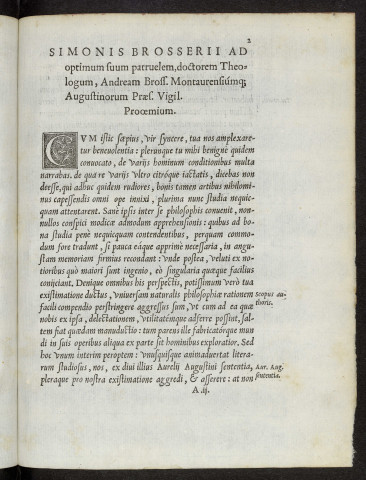 2
SIMONIS BROSSERII AD
optimum suum patruelem, doctorem Theo-
logum, Andream Bross. Montaurensiúmq;
Augustinorum Præs. Vigil.
Prooemium.
CVM istic sæpius, vir syncere, tua nos amplexare-
tur beneuolentia: plerunque tu mihi benignè quidem
conuocato, de varijs hominum conditionibus multa
narrabas. de qua re varijs vltro citróque iactatis, dicebas non
deesse, qui adhuc quidem rudiores, bonis tamen artibus nihilomi-
nus capessendis omni ope innixi, plurima nunc studia nequic-
quam attentarent. Sanè ipsis inter se philosophis conuenit, non-
nullos conspici modicæ admodum apprehensionis: quibus ad bo-
na studia penè nequicquam contendentibus, perquam commo-
dum fore tradunt, si pauca eáque apprimè necessaria, in angu-
stam memoriam firmius recondant: vnde postea, veluti ex no-
tioribus quò maiori sunt ingenio, eò singularia quæque facilius
conijciant. Denique omnibus his perspectis, potissimum verò tua
existimatione ductus, vniuersam naturalis philosophiæ rationem
facili compendio perstringere aggressus sum, vt cum ad ea quæ
nobis ex ipsa, delectationem, vtilitatémque adferre possint, sal-
tem fiat quædam manuductio: tum parens ille fabricatórque mun
di in suis operibus aliqua ex parte sit hominibus exploratior. Sed
hoc vnum interim peroptem: vnusquisque animaduertat litera-
rum studiosus, nos, ex diui illius Aurelij Augustini sententia,
pleraque pro nostra existimatione aggredi, & asserere: at non
A ij.
Scopus au-
thoris.
Aur. Aug.
sententia.